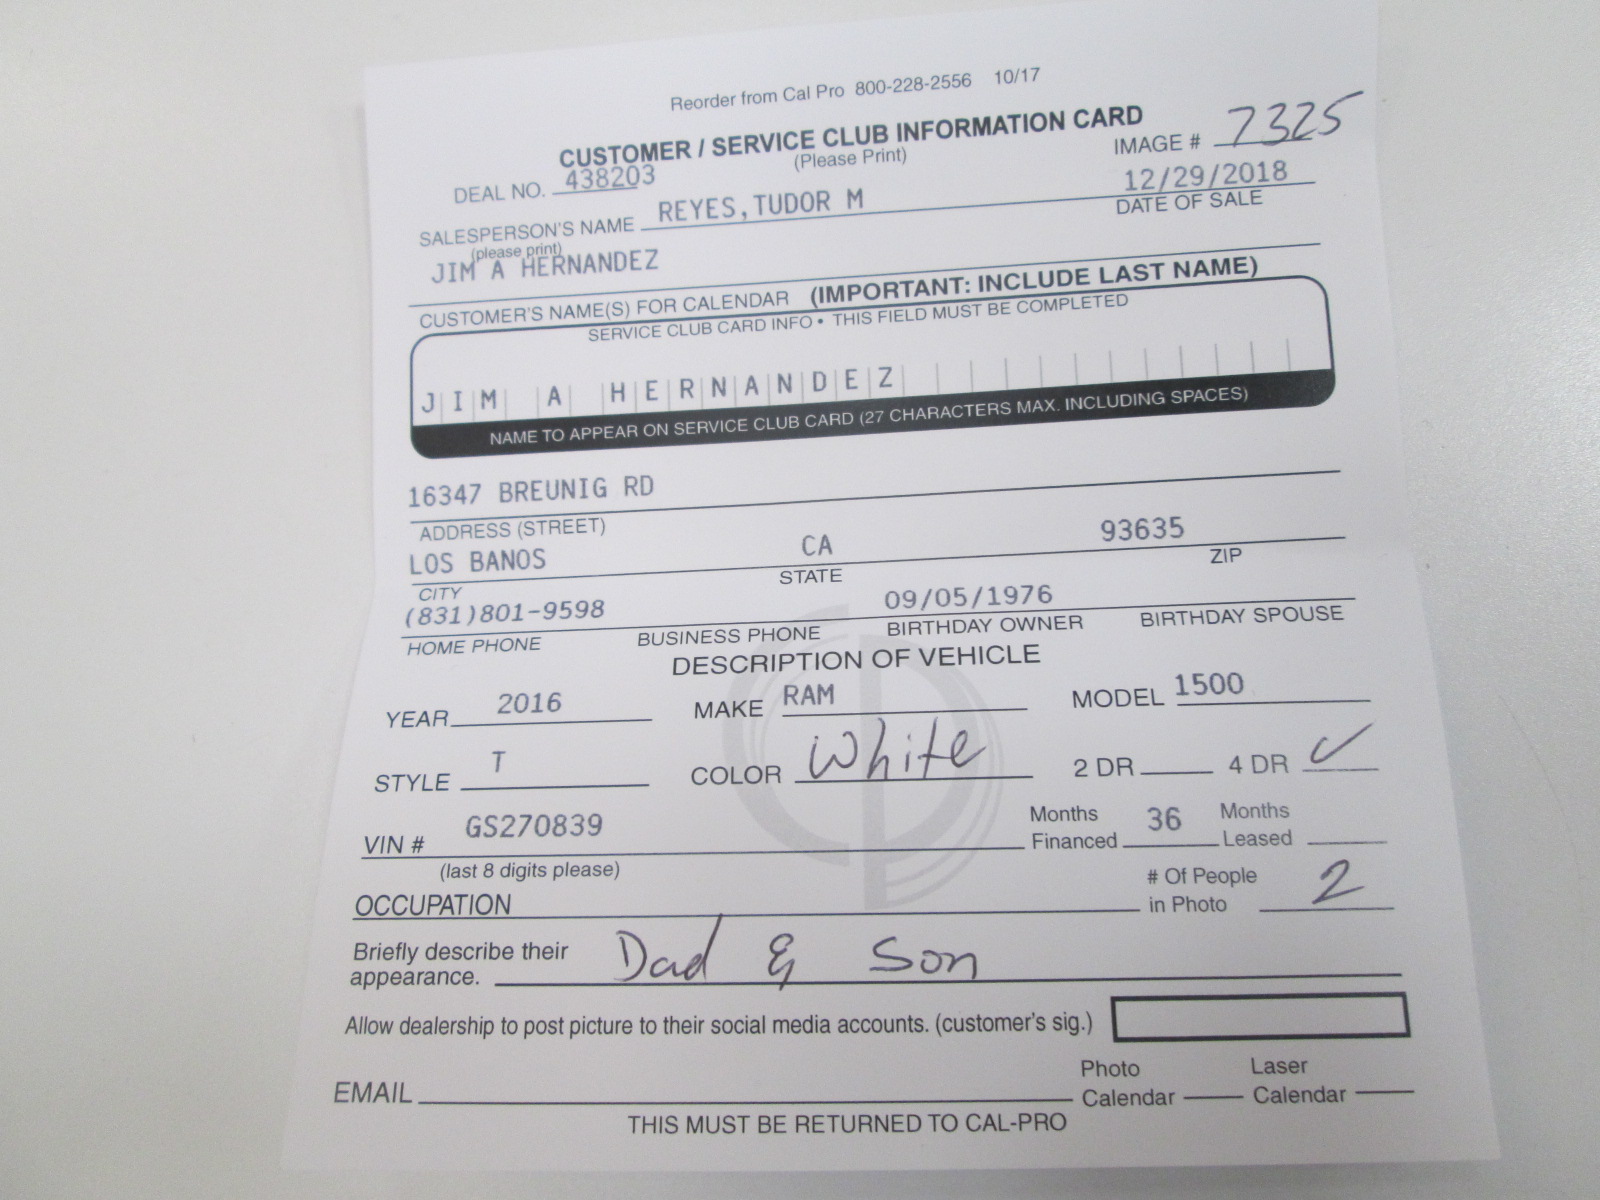 Reorder from Cal Pro 800-228-2556 10/17
CUSTOMER / SERVICE CLUB INFORMATION CARD
(Please Print)
IMAGE # 7325
DEAL NO. 438203
12/29/2018
SALESPERSON'S NAME REYES,TUDOR M
DATE OF SALE
(please print)
JIM A HERNANDEZ
CUSTOMER'S NAME(S) FOR CALENDAR (IMPORTANT: INCLUDE LAST NAME)
SERVICE CLUB CARD INFO • THIS FIELD MUST BE COMPLETED
JIM A HERNANDEZ
NAME TO APPEAR ON SERVICE CLUB CARD (27 CHARACTERS MAX. INCLUDING SPACES)
16347 BREUNIG RD
ADDRESS (STREET)
LOS BANOS CA 93635
CITY STATE ZIP
(831)801-9598 09/05/1976
HOME PHONE BUSINESS PHONE BIRTHDAY OWNER BIRTHDAY SPOUSE
DESCRIPTION OF VEHICLE
YEAR 2016 MAKE RAM MODEL 1500
STYLE T COLOR White 2 DR 4 DR ✓
VIN # GS270839 Months Financed 36 Months Leased
(last 8 digits please)
OCCUPATION # Of People in Photo 2
Briefly describe their appearance. Dad & Son
Allow dealership to post picture to their social media accounts. (customer's sig.)
EMAIL Photo Calendar Laser Calendar
THIS MUST BE RETURNED TO CAL-PRO